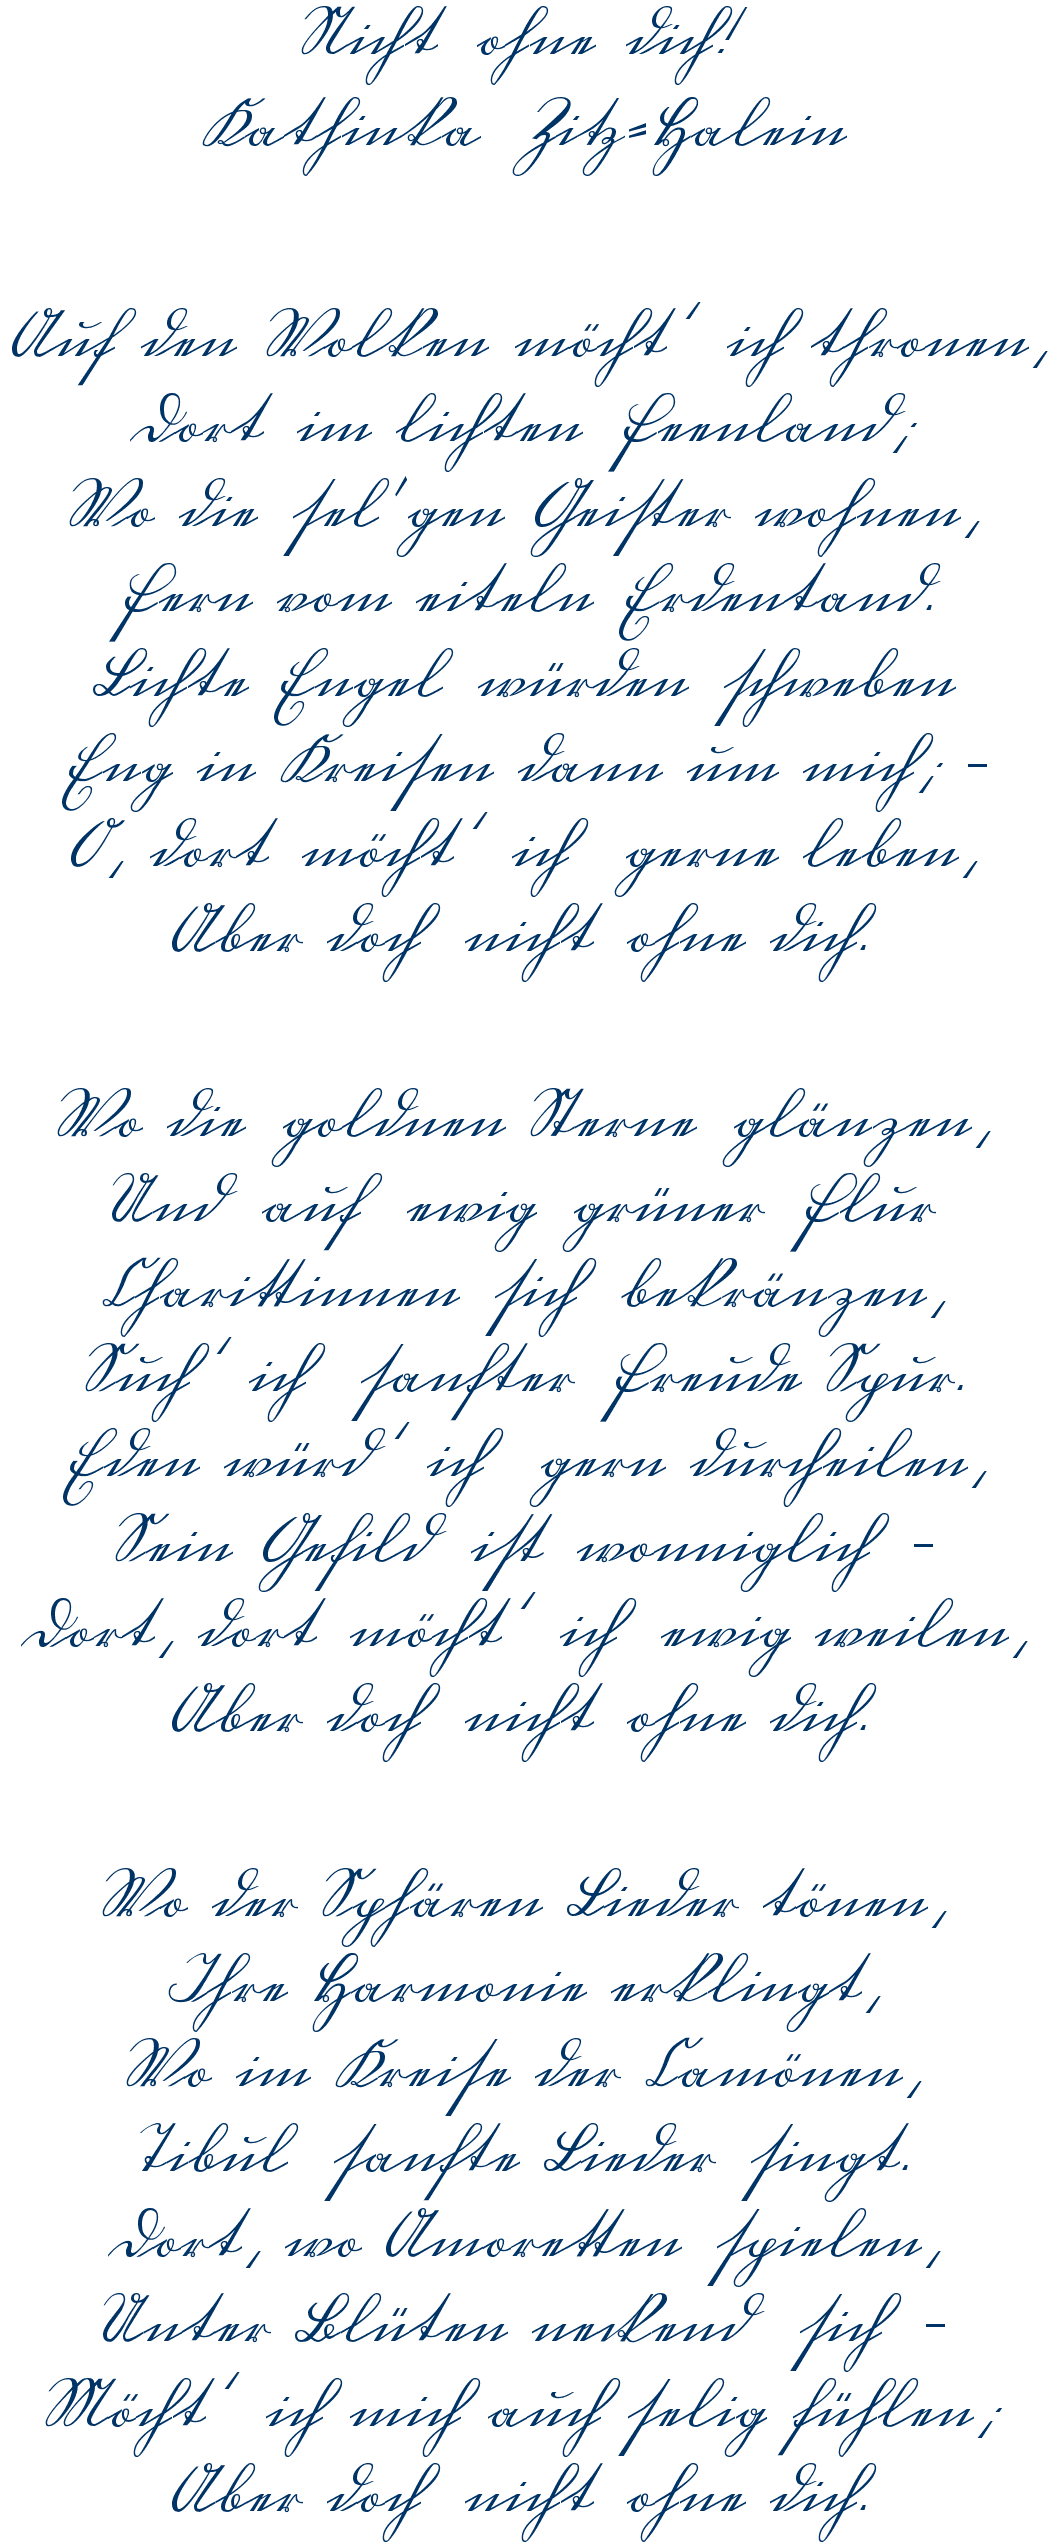 Nicht ohne dich!
Kathinka Zitz=Halein
Auf den Wolken möcht' ich thronen,
Dort im lichten Feenland;
Wo die sel'gen Geister wohnen,
Fern vom eiteln Erdentand.
Lichte Engel würden schweben
Eng in Kreisen dann um mich; –
O, dort möcht' ich gerne leben,
Aber doch nicht ohne dich.
Wo die goldnen Sterne glänzen,
Und auf ewig grüner Flur
Charittinnen sich bekränzen,
Such' ich sanfter Freude Spur.
Eden würd' ich gern durcheilen,
Sein Gefild ist wonniglich –
Dort, dort möcht' ich ewig weilen,
Aber doch nicht ohne dich.
Wo der Sphären Lieder tönen,
Ihre Harmonie erklingt,
Wo im Kreise der Camönen,
Tibul sanfte Lieder singt.
Dort, wo Amoretten spielen,
Unter Blüten neckend sich –
Möcht' ich mich auch selig fühlen;
Aber doch nicht ohne dich.